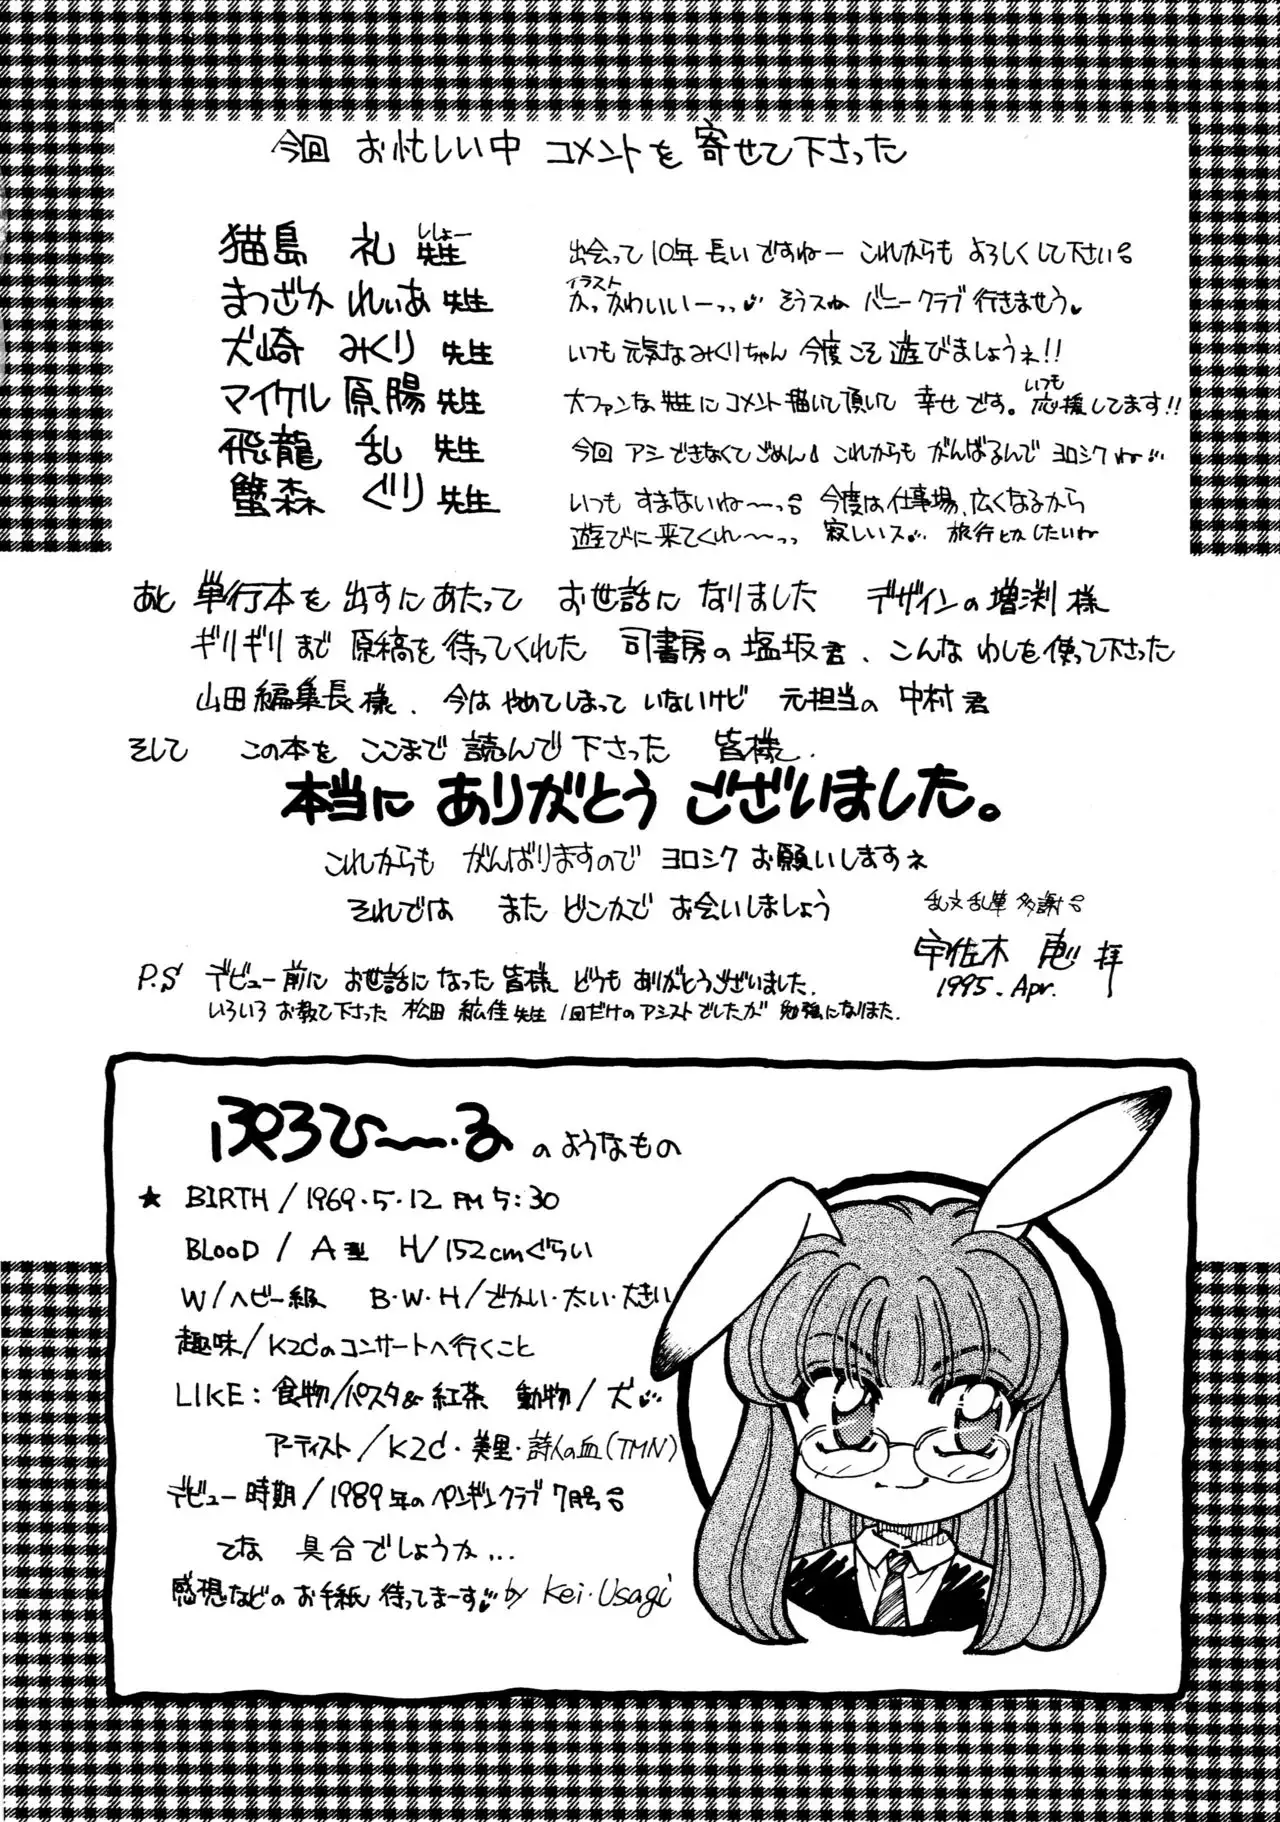 今回 お忙しい中 コメントを 寄せて下さった
猫島 礼 先生 ししょー 出会って 10年 長いですねー これからも よろしくして下さい
まつざか れいあ 先生 かっかわいいーっっ イラスト そうスね バニークラブ 行きませう
犬崎 みくり 先生 いつも 元気な みくりちゃん 今度こそ 遊びましょうネ!!
マイケル 原腸 先生 大ファンな 先生に コメント描いて頂いて 幸せです。 いつも 応援してます!!
飛龍 乱 先生 今回 アシできなくてごめん これからも がんばるんで ヨロシクね
蟹森 ぐり 先生 いつも すまないね〜〜っ 今度は仕事場、広くなるから
遊びに来てくれ〜〜っっ 寂しいス 旅行とかしたいね
あと 単行本を 出すにあたって お世話に なりました デザインの 増渕 様
ギリギリまで 原稿を 待ってくれた 司書房の 塩坂君、こんな わしを 使って下さった
山田 編集長様、今は やめてしまって いないけど 元担当の 中村 君
そして この本を ここまで 読んで 下さった 皆様、
本当に ありがとう ございました。
これからも がんばりますので ヨロシク お願いしますネ
それでは また どこかで お会いしましょう
乱文乱筆 多謝
宇佐木 恵 拝
1995. Apr.
P.S デビュー前に お世話になった 皆様 どうも ありがとうございました.
いろいろ お教え下さった 松田 紘佳 先生 1回だけの アシストでしたが 勉強になりました.
ぷろひ〜〜る のようなもの
★ BIRTH / 1969・5・12 PM 5:30
BLOOD / A型 H/152cmぐらい
W/ヘビー級 B・W・H/でかい・太い・大きい
趣味/K2Cのコンサートへ行くこと
LIKE: 食物/パスタ& 紅茶 動物/犬
アーティスト/K2C・美里・詩人の血(TMN)
デビュー時期/1989年のペンギンクラブ 7月号
てな 具合でしょうか...
感想などの お手紙 待ってまーす by Kei・Usagi